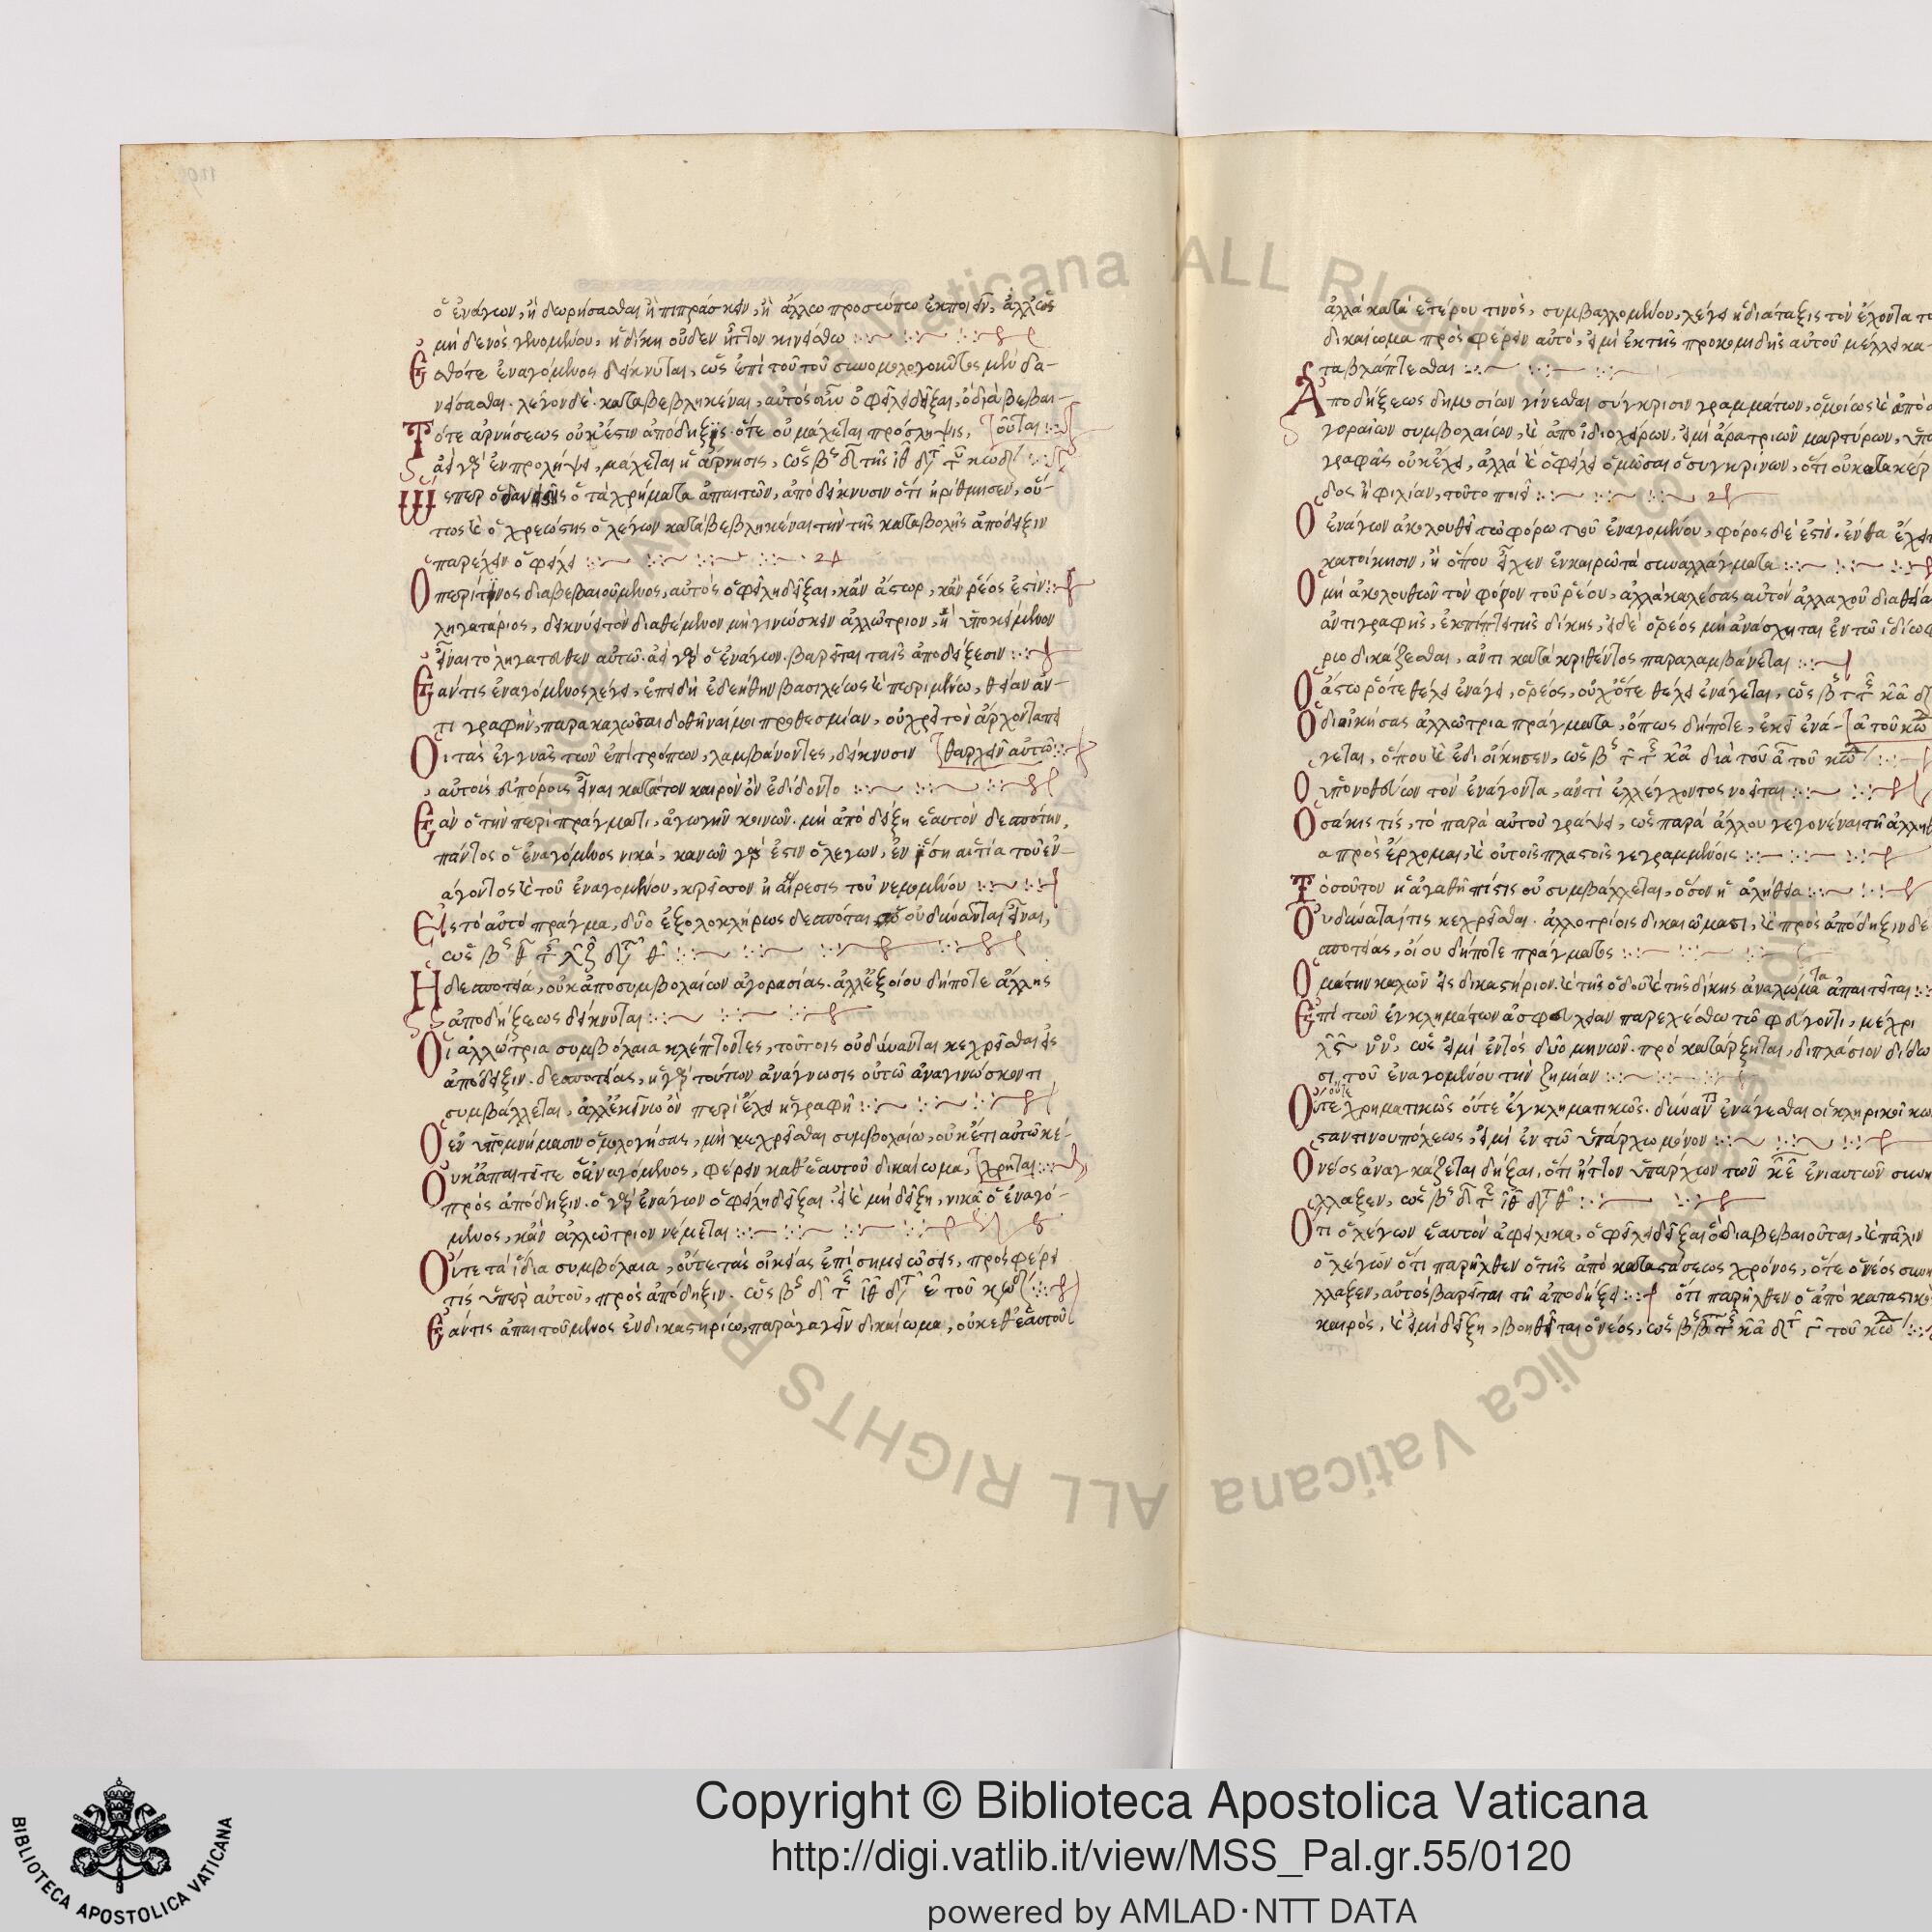 ὁ ἐνάγων, ἢ δωρήσασθαι ἢ πιπράσκειν, ἢ ἄλλω προσώπω ἐκποιεῖν, ἀλλ' ὡς
μηδενὸς γινομένου, ἡ δίκη οὐδὲν ἧττον κινείσθω
ἐναγόμενος δείκνυται, ὡς ἐπὶ τοῦ τοῦ συνομολογοῦντος μὲν δα-
νείσασθαι. λέγων δὲ. καταβεβληκέναι, αὐτὸς οὖν ὀφείλει δεῖξαι, ὃ διαβεβαι-
Τότε ἀρνήσεως οὐκ ἔστιν ἀπόδηξις. ὅτε οὐ μάχεται πρόσληψις, οῦται
εἰ γὰρ ἐν προλήψει, μάχεται ἡ ἄρνησις
Ὥσπερ ὁ δανειστὴς ὁ τὰ χρήματα ἀπαιτῶν, ἀποδείκνυσιν ὅτι ἠρίθμησεν, οὕ-
τως καὶ ὁ χρεώστης ὁ λέγων καταβεβληκέναι τὴν τῆς καταβολῆς ἀπόδειξιν
παρέχειν ὀφείλει
Ὁ περί τινος διαβεβαιούμενος, αὐτὸς ὀφείλη δεῖξαι, κἂν ἄκτωρ, κἂν ῥέος ἐστίν
ληγατάριος, δεικνύει τὸν διαθέμενον μὴ γινώσκειν ἀλλότριον, ἢ ὑποκείμενον
εἶναι τὸ ληγατευθὲν αὐτῶ. ἀεὶ γὰρ ὁ ἐνάγων. βαρεῖται ταῖς ἀποδείξεσιν
Ἐάν τις ἐναγόμενος λέγει, ἐπειδὴ ἐδεήθην βασιλέως καὶ περιμένω, θείαν ἀν-
τιγραφὴν, παρακαλῶ δοθῆναί μοι προθεσμίαν, οὐ χρεῖ τὸν ἄρχοντα πεί
Οἱ τὰς ἐγγυὰς τῶν ἐπιτρόπων, λαμβάνοντες, δείκνυσιν θαρχεῖν αὐτῶ
αὐτοὺς εὐπόροις εἶναι κατὰ τὸν καιρὸν ὃν ἐδίδοντο
Ἐὰν ὁ τὴν περὶ πράγματι, ἀγωγὴν κινῶν. μὴ ἀποδείξη ἑαυτὸν δεσπότην,
πάντως ὁ ἐναγόμενος νικᾶ, κανὼν γὰρ ἐστιν ὁ λέγων, ἐν ἴση αἰτία τοῦ ἐν-
άγοντος καὶ τοῦ ἐναγομένου, κρεῖσσον ἡ αἵρεσις τοῦ νεμομένου
Εἰς τὸ αὐτὸ πρᾶγμα, δύο ἐξολοκλήρως δεσπόται οὐ δύνανται εἶναι,
Ἡ δεσποτεία, οὐκ ἀπὸ συμβολαίων ἀγορασίας. ἀλλ' ἐξ οἵου δήποτε ἄλλης
ἀποδήξεως δείκνυται
Οἱ ἀλλώτρια συμβόλαια κλέπτοντες, τούτοις οὐ δύνανται κεχρεῖσθαι εἰς
ἀπόδειξιν. δεσποτείας, ἡ γὰρ τούτων ἀνάγνωσις οὔτω ἀναγινώσκοντι
συμβάλλεται, ἀλλ' ἐκείνω ὃν περιέχει ἡ γραφὴ
Ὁ ἐν ὑπομνήμασιν ὁμολογήσας, μὴ κεχρεῖσθαι συμβολαίω, οὐκ ἔτι αὐτῶ κέ-
Οὐκ ἀπαιτεῖται ὁ ἐναγόμενος, φέρειν καθ' ἑαυτοῦ δικαίωμα, χρηται
πρὸς ἀπόδηξιν. ὁ γὰρ ἐνάγων ὀφείλη δεῖξαι. εἰ καὶ μὴ δείξη, νικᾶ ὁ ἐναγό-
μενος, κἂν ἀλλώτριον νέμεται
Οὔτε τὰ ἴδια συμβόλαια, οὔτε τὰς οἰκείας ἐπισημειώσεις, προσφέρει
τις ὑπὲρ αὐτοῦ, πρὸς ἀπόδηξιν.
Ἐάν τις ἀπαιτούμενος ἐν δικαστηρίω, παραγαγεῖν δικαίωμα, οὐ καθ' ἑαυτοῦ
ἀλλὰ κατὰ ἑτέρου τινὸς, συμβαλλομένου, λέγει ἡ διάταξις τὸν ἔχοντα το
δικαίωμα προσφέρειν αὐτὸ, εἰ μὴ ἐκ τῆς προκομιδῆς αὐτοῦ μέλλει κα-
ταβλάπτεσθαι
Ἀποδήξεως δημοσίων γίνεσθαι σύγκρισιν γραμμάτων, ὁμοίως καὶ ἀπὸ ἀ
γοραίων συμβολαίων, καὶ ἀπὸ ἰδιοχείρων, εἰ μὴ ἄρα τριῶν μαρτύρων, ὑπο
γραφὰς οὐκ ἔχει, ἀλλὰ καὶ ὀφείλει ὀμόσαι ὁ συγκρίνων, ὅτι οὐ κατὰ κέρ
δος ἢ φιλίαν, τοῦτο ποιεῖ
Ὁ ἐνάγων ἀκολουθεῖ τῶ φόρω τοῦ ἐναγομένου, φόρος δὲ ἐστὶν. ἔνθα ἔχει
κατοίκησιν, ἢ ὅπου εἶχεν ἐν καιρῶ τὰ συναλλάγματα
Ὁ μὴ ἀκολουθῶν τὸν φόρον τοῦ ῥέου, ἀλλὰ καλέσας αὐτὸν ἀλλαχοῦ διὰ θεία
ἀντιγραφῆς, ἐκπίπτει τῆς δίκης, εἰ δὲ ὁ ῥέος μὴ ἀνάσχηται ἐν τῶ ἰδίω φ
ριο δικάζεσθαι, αντι κατακριθέντος παραλαμβάνεται
Ὁ ἄκτωρ ὅτε θέλει ἐνάγει, ὁ ῥέος, οὐχ ὅτε θέλει ἐνάγεται,
Ὁ διοικήσας ἀλλότρια πράγματα, ὅπως δήποτε, ἐκεῖ ἐνά-
γεται, ὅπου καὶ ἐδιοίκησεν,
Ὁ ὑπονοθεύων τὸν ἐνάγοντα, ἀντὶ ἐλλέγχοντος νοεῖται
Ὁσάκις τίς, τὸ παρὰ αὐτοῦ γράψει, ὡς παρὰ ἄλλου γεγονέναι τῆ ἀλη
α προσέρχομαι, καὶ οὐ τοῖς πλαστοῖς γεγραμμένοις
Τοσοῦτον ἡ ἀγαθὴ πίστις οὐ συμβάλλεται, ὅσον ἡ ἀλήθεια
Οὐ δύναταί τις κεχρεῖσθαι. ἀλλοτρίοις δικαιώμασι, καὶ πρὸς ἀπόδηξιν δε
σποτείας, οἵου δήποτε πράγματος
Ὁ μάτην καλῶν εἰς δικαστήριον. καὶ τῆς ὁδοῦ καὶ τῆς δίκης ἀναλώματα ἀπαιτεῖται
Ἐπὶ τῶν ἐγκλημάτων ἀσφάλειαν παρεχέσθω τῶ φεύγοντι, μέχρι
ὡς εἰ μὴ ἐντὸς δύο μηνῶν. προκατάρξηται, διπλάσιον δίδω
σι τοῦ ἐναγομένου τὴν ζημίαν
Οὔτε χρηματικῶς οὔτε ἐγκληματικῶς. δύνανται ἐνάγεσθαι οἱ κληρικοὶ κων
σταντινουπόλεως, εἰ μὴ ἐν τῶ ὑπάρχω μόνον
Ὁ νέος ἀναγκάζεται δῆξαι, ὅτι ἧττον ὑπάρχων τῶν κε ἐνιαυτῶν συνη
λλαξεν,
Ὅτι ὁ λέγων ἑαυτὸν ἀφείλικα, ὀφείλει δεῖξαι ὃ διαβεβαιοῦται, καὶ πάλιν
ὁ λέγων ὅτι παρῆλθεν ὁ τῆς ἀποκαταστάσεως χρόνος, ὅτε ὁ νέος συνη
λλαξεν, αὐτὸς βαρεῖται τῆ ἀποδήξει ὅτι παρῆλθεν ὁ ἀποκαταστικὸ
καιρὸς, καὶ εἰ μὴ δείξη, βοηθεῖται ὁ νέος,
Copyright © Biblioteca Apostolica Vaticana
http://digi.vatlib.it/view/MSS_Pal.gr.55/0120
powered by AMLAD·NTT DATA
BIBLIOTECA APOSTOLICA VATICANA